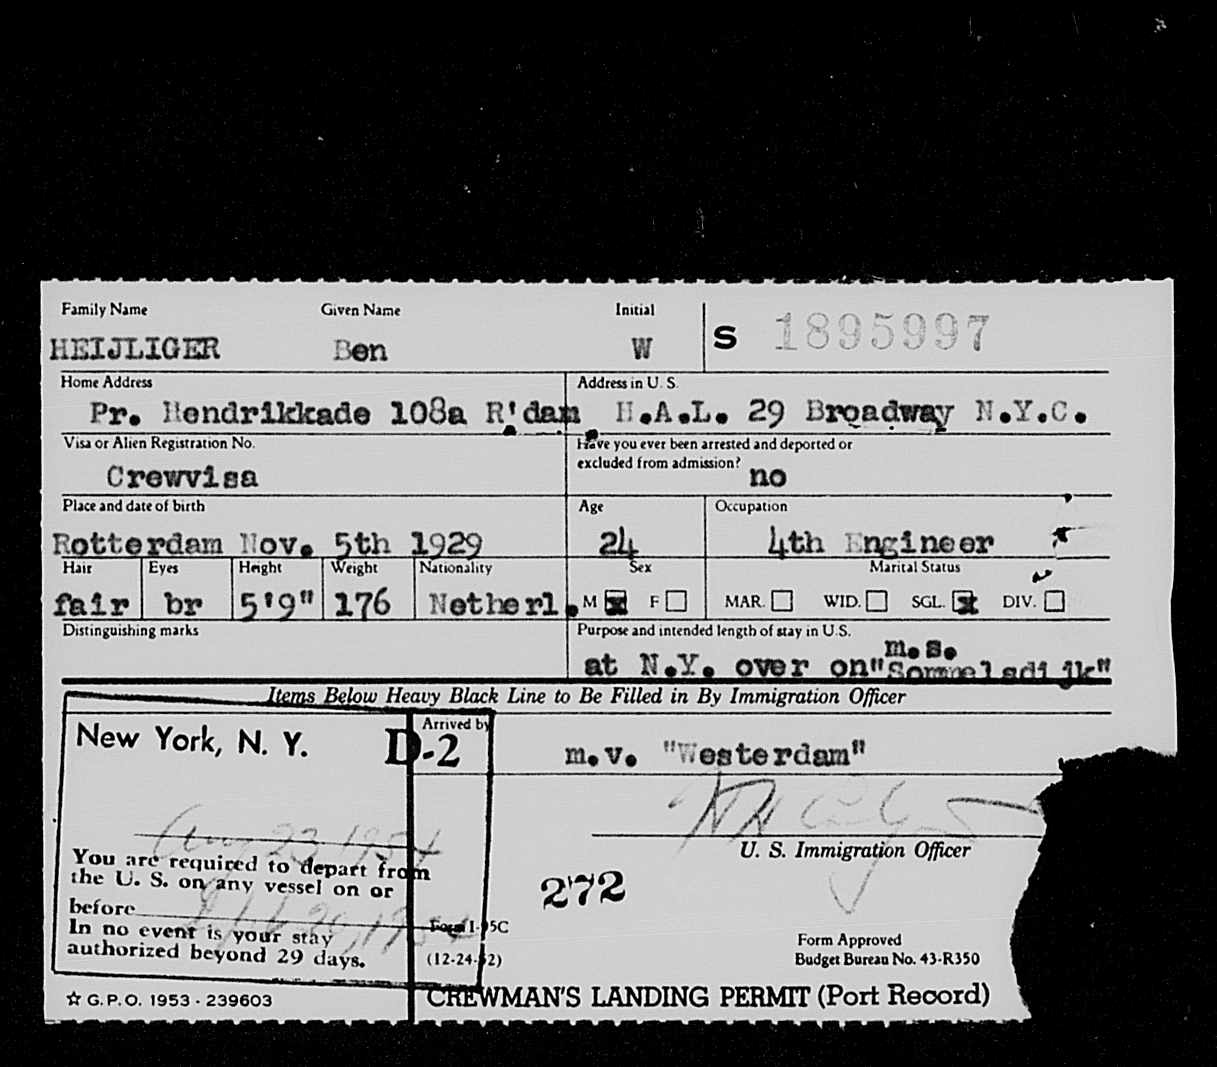 Family Name Given Name Initial
HEIJLIGER Ben W S 1895997
Home Address Address in U. S.
Pr. Hendrikkade 108a R'dam H.A.L. 29 Broadway N.Y.C.
Visa or Alien Registration No. Have you ever been arrested and deported or
excluded from admission?
Crewvisa no
Place and date of birth Age Occupation
Rotterdam Nov. 5th 1929 24 4th Engineer
Hair Eyes Height Weight Nationality Sex Marital Status
fair br 5'9" 176 Netherl. M x F MAR. WID. SGL. x DIV.
Distinguishing marks Purpose and intended length of stay in U.S.
m.s.
at N.Y. over on "Sommelsdijk"
Items Below Heavy Black Line to Be Filled in By Immigration Officer
Arrived by
New York, N. Y. D-2 m.v. "Westerdam"
Aug 23, 1954
U. S. Immigration Officer
You are required to depart from
the U. S. on any vessel on or
272
before Sept 20, 1954
Form I-95C
In no event is your stay
authorized beyond 29 days.
(12-24-52)
Form Approved
Budget Bureau No. 43-R350
☆ G.P.O. 1953 - 239603 CREWMAN'S LANDING PERMIT (Port Record)